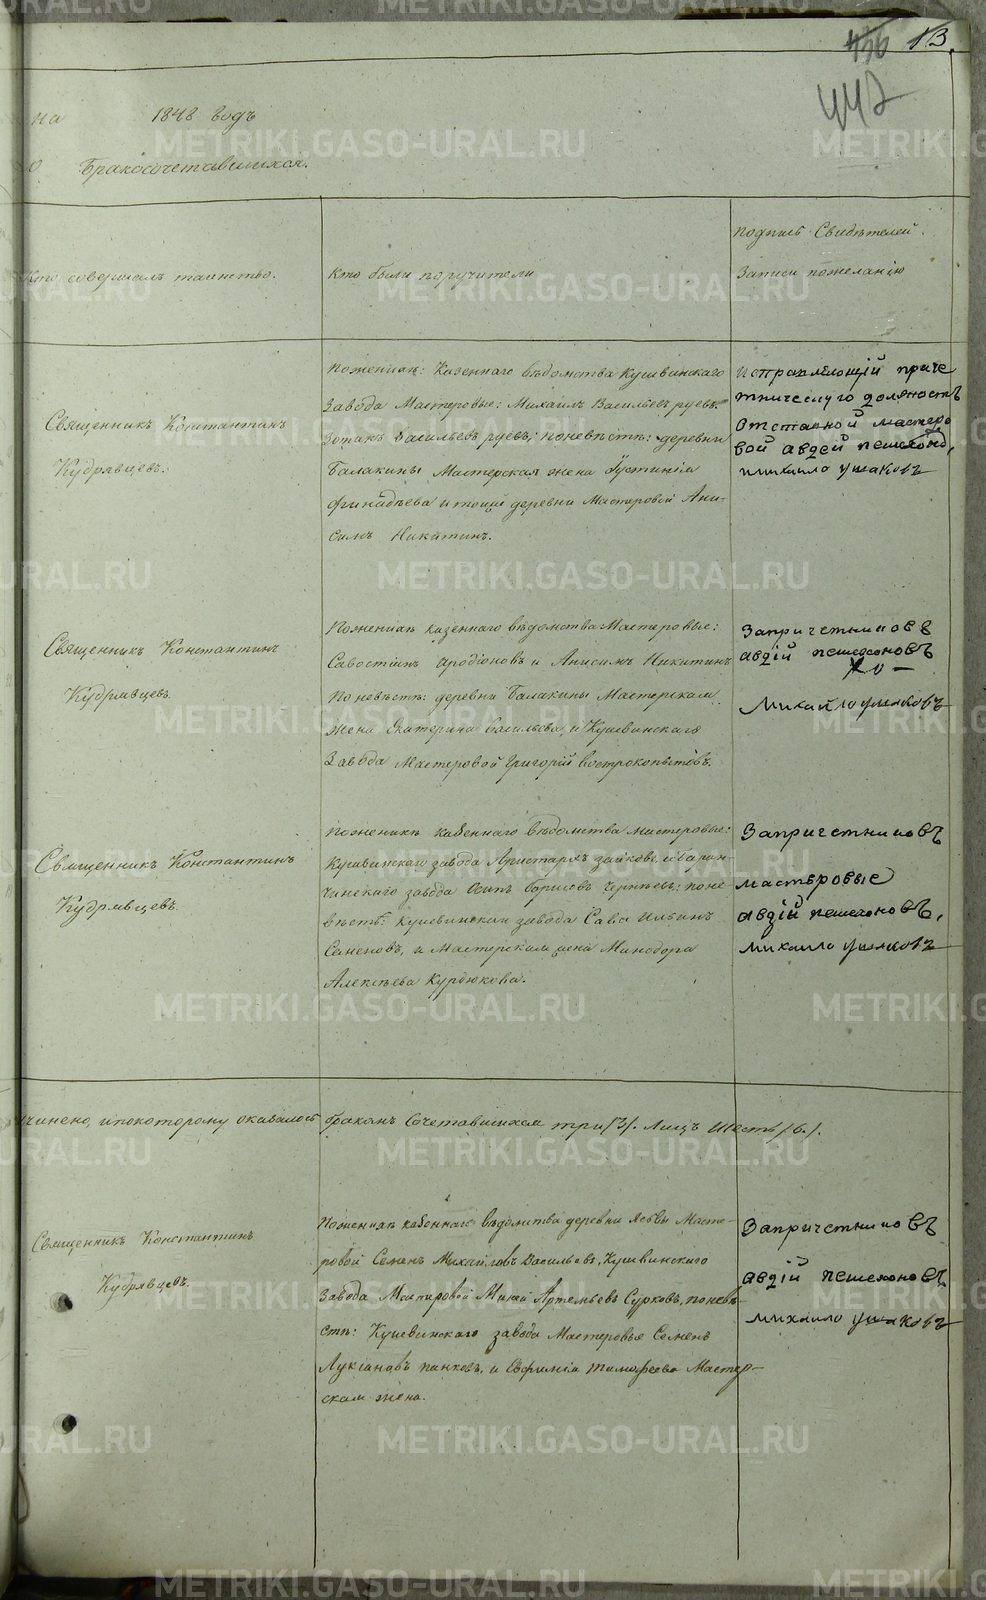 436 13.
442
на 1848 годъ
о Бракосочетавшихся.
Кто совершалъ таинство.
Кто были поручители
подпись Свидѣтелей.
Записи по желанію
Священникъ Константинъ
Кудрявцевъ.
По женихѣ: Казеннаго вѣдомства Кушвинскаго
Завода Мастеровые: Михаилъ Васильевъ
Васильевъ по невѣстѣ: деревни
Балакины Мастерская жена Іустинія
и тойже деревни Мастеровой Ани-
симъ Никитинъ.
исправляющій приче
тническую должность
Отставной мастеро
вой авдей пешехонов,
михаило ушаковъ
Священникъ Константинъ
Кудрявцевъ.
По женихѣ казеннаго вѣдомства Мастеровые:
Савостіанъ и Анисимъ Никитинъ
По невѣстѣ: деревни Балакины Мастерская
жена Екатерина Васильева, и Кушвинскаго
Завода Мастеровой Григорій Вострокопытовъ.
За причетниковъ
авдій пешехоновъ
Михайло ушаковъ
Священникъ Константинъ
Кудрявцевъ.
По женихѣ казеннаго вѣдомства мастеровые:
Кушвинскаго завода Аристархъ Зайковъ, и Баран-
чинскаго завода Осипъ Борисовъ по не-
вѣстѣ: Кушвинскаго завода Савва Ильинъ
Семеновъ, и Мастерская жена Минодора
Алексѣева Курдюкова.
За причетниковъ
мастеровые
авдій пешехоновъ,
михаило ушаковъ
учинено, и по которому оказалось бракомъ Сочетавшихся три /3/. Лицъ Шесть /6/.
Священникъ Константинъ
Кудрявцевъ.
По женихѣ казеннаго вѣдомства деревни Масте-
ровой Семенъ Михайловъ Васильевъ, Кушвинскаго
Завода Мастеровой Артемьевъ Сурковъ, по невѣ-
стѣ: Кушвинскаго завода Мастеровые Семенъ
Лукіановъ Панковъ, и Евфимія Тимофеева Мастер-
ская жена.
За причетниковъ
авдій пешехоновъ
михаило ушаковъ
METRIKI.GASO-URAL.RU